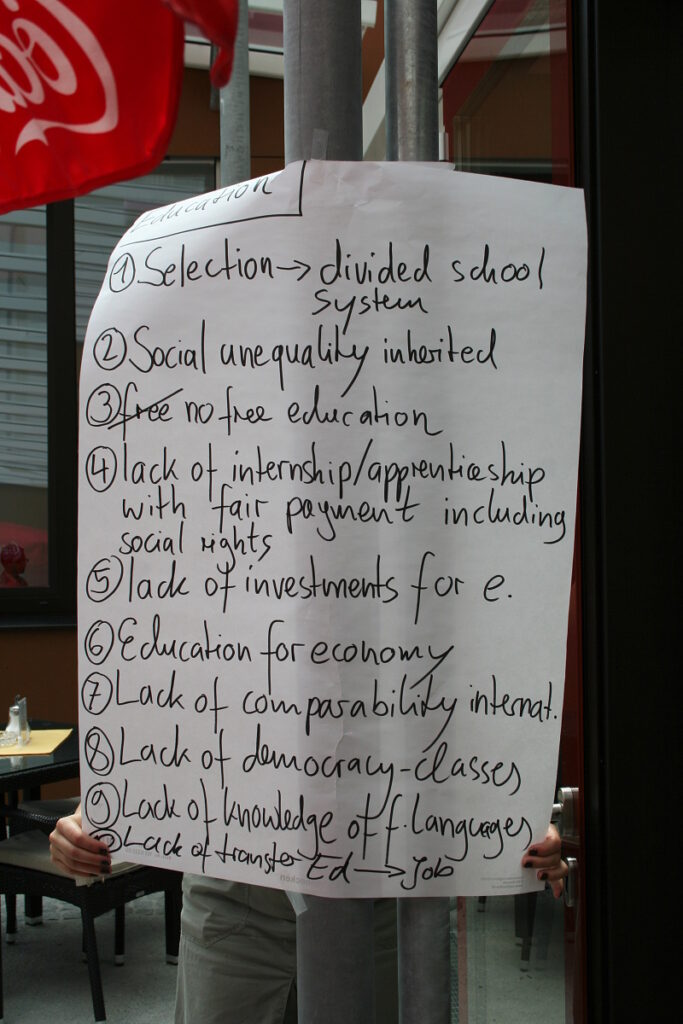 Education
① Selection → divided school
system
② Social unequality inherited
③ free no free education
④ lack of internship/apprenticeship
with fair payment including
social rights
⑤ lack of investments for e.
⑥ Education for economy
⑦ Lack of comparability internat.
⑧ Lack of democracy-classes
⑨ Lack of knowledge of f. languages
Lack of transfer Ed → Job